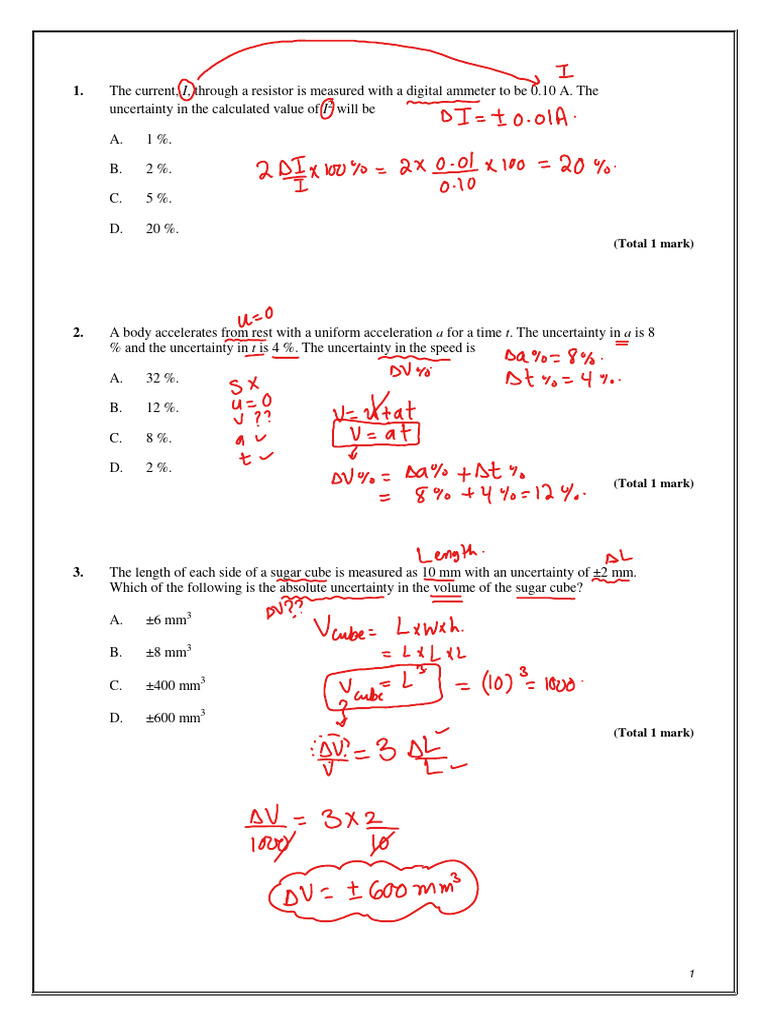 I
1. The current, I, through a resistor is measured with a digital ammeter to be 0.10 A. The
uncertainty in the calculated value of I² will be
ΔI = ± 0.01A.
A. 1 %.
B. 2 %.
2 ΔI/I × 100% = 2 × 0.01/0.10 × 100 = 20 %.
C. 5 %.
D. 20 %.
(Total 1 mark)
u=0
2. A body accelerates from rest with a uniform acceleration a for a time t. The uncertainty in a is 8
% and the uncertainty in t is 4 %. The uncertainty in the speed is
Δa% = 8%.
ΔV%
Δt % = 4 %.
A. 32 %.
S X
B. 12 %.
u = 0
V = u + at
V ??
C. 8 %.
a ✓
V = at
t ✓
D. 2 %.
ΔV% = Δa% + Δt %
(Total 1 mark)
= 8% + 4% = 12 %.
Length.
ΔL
3. The length of each side of a sugar cube is measured as 10 mm with an uncertainty of ±2 mm.
Which of the following is the absolute uncertainty in the volume of the sugar cube?
ΔV??
A. ±6 mm³
V cube = L×W×h.
B. ±8 mm³
= L × L × L
C. ±400 mm³
V cube = L³ = (10)³ = 1000.
?
D. ±600 mm³
(Total 1 mark)
ΔV?/V = 3 ΔL/L
ΔV/1000 = 3 × 2/10
ΔV = ± 600 mm³
1